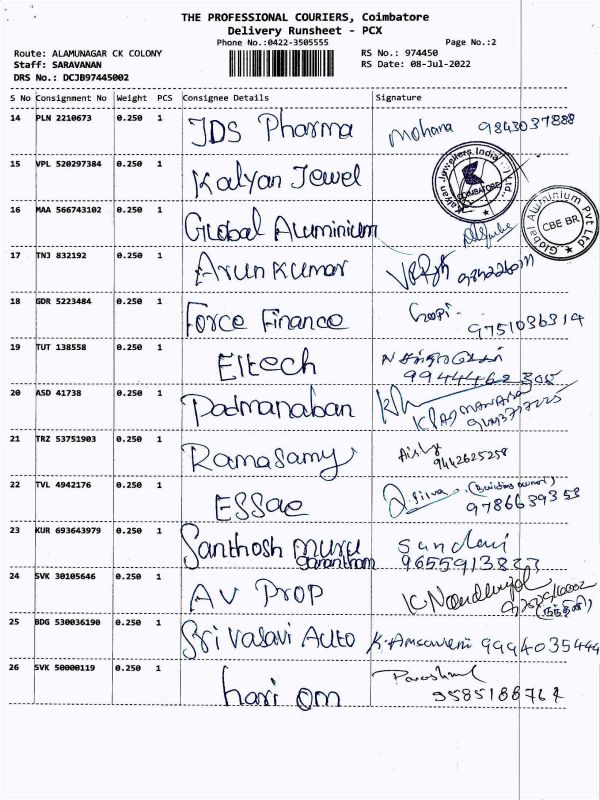 THE PROFESSIONAL COURIERS, Coimbatore
Delivery Runsheet - PCX
Phone No.:0422-3505555 Page No.:2
Route: ALAMUNAGAR CK COLONY RS No.: 974450
Staff: SARAVANAN RS Date: 08-Jul-2022
DRS No.: DCJB97445002
S No Consignment No Weight PCS Consignee Details Signature
14 PLN 2210673 0.250 1 JDS Pharma Mohana 9843037888
15 VPL 520297384 0.250 1 Kalyan Jewel
Kalyan Jewellers India Ltd.,
COIMBATORE
16 MAA 566743102 0.250 1 Global Aluminium
Global Aluminium Pvt Ltd
CBE BR
17 TNJ 832192 0.250 1 Arunkumar
18 GDR 5223484 0.250 1 Force Finance Gopi.
9751036314
19 TUT 138558 0.250 1 Eltech
9944462305
20 ASD 41738 0.250 1 Padmanaban
KPADMANABA
21 TRZ 53751903 0.250 1 Ramasamy
9442625258
22 TVL 4942176 0.250 1 ESSae Silva (Building owner)
9786639353
23 KUR 693643979 0.250 1 Santhosh muru
garantham
24 SVK 30105646 0.250 1 AV PROP
25 BDG 530036190 0.250 1 Sri Vasavi Auto 9994035444
26 SVK 50000119 0.250 1 hari om